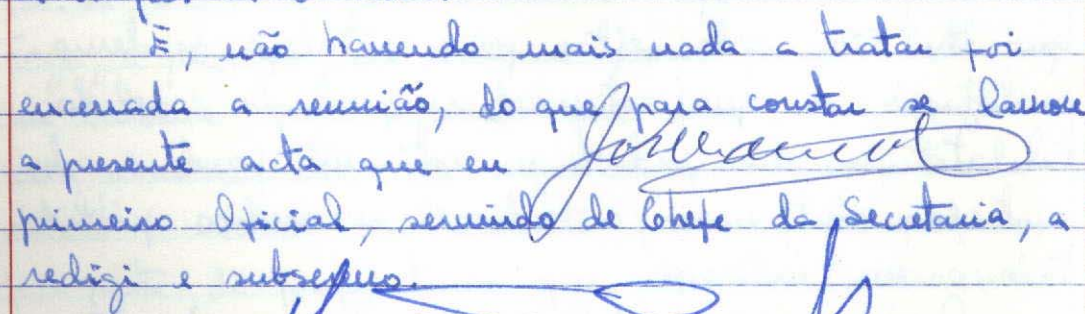 E, não havendo mais nada a tratar foi
encerrada a reunião, do que para constar se lavrou
a presente acta que eu
primeiro Oficial, servindo de Chefe da Secretaria, a
redigi e subscrevo.